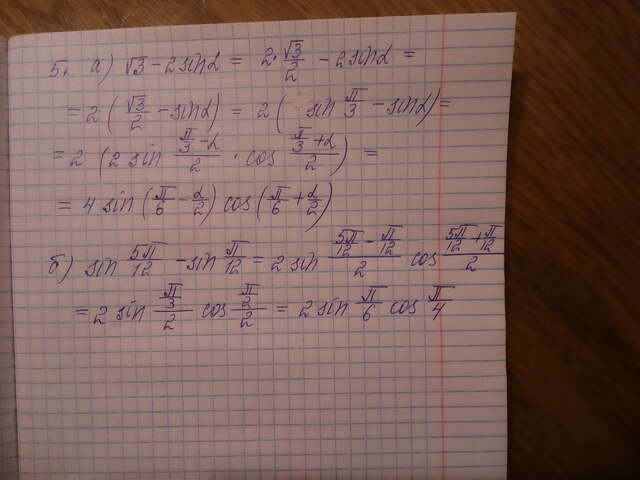 5. а) √3 - 2 sin α = 2 · √3/2 - 2 sin α =
= 2 (√3/2 - sin α) = 2 (sin π/3 - sin α) =
= 2 (2 sin (π/3 - α)/2 · cos (π/3 + α)/2) =
= 4 sin (π/6 - α/2) cos (π/6 + α/2)
б) sin 5π/12 - sin π/12 = 2 sin (5π/12 - π/12)/2 cos (5π/12 + π/12)/2
= 2 sin (π/3)/2 cos (π/2)/2 = 2 sin π/6 cos π/4